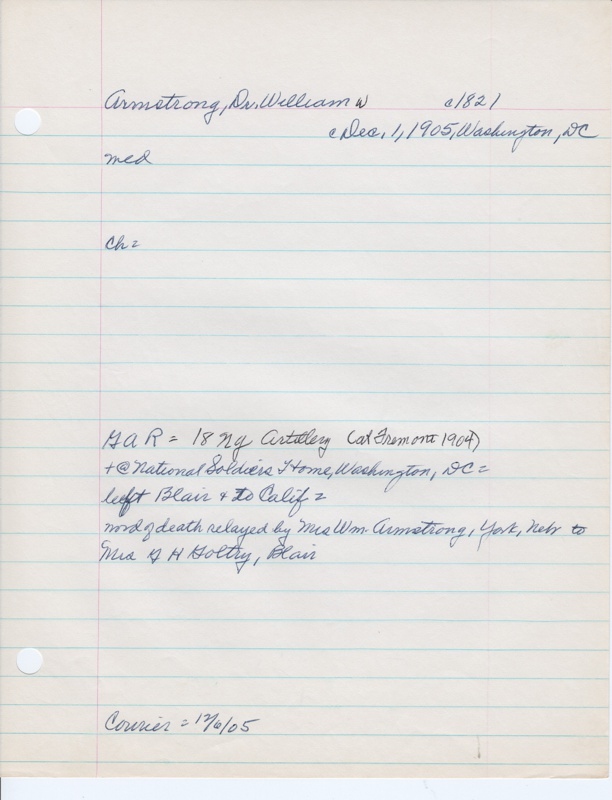 Armstrong, Dr. William W c1821
c Dec. 1, 1905, Washington, DC
med
Ch =
GAR = 18 Ny Artillery (at Fremont 1904)
+ @ National Soldiers Home, Washington, DC =
left Blair + to Calif =
word of death relayed by Mrs Wm. Armstrong, York, Nebr to
Mrs G H Goltry, Blair
Courier = 12/6/05